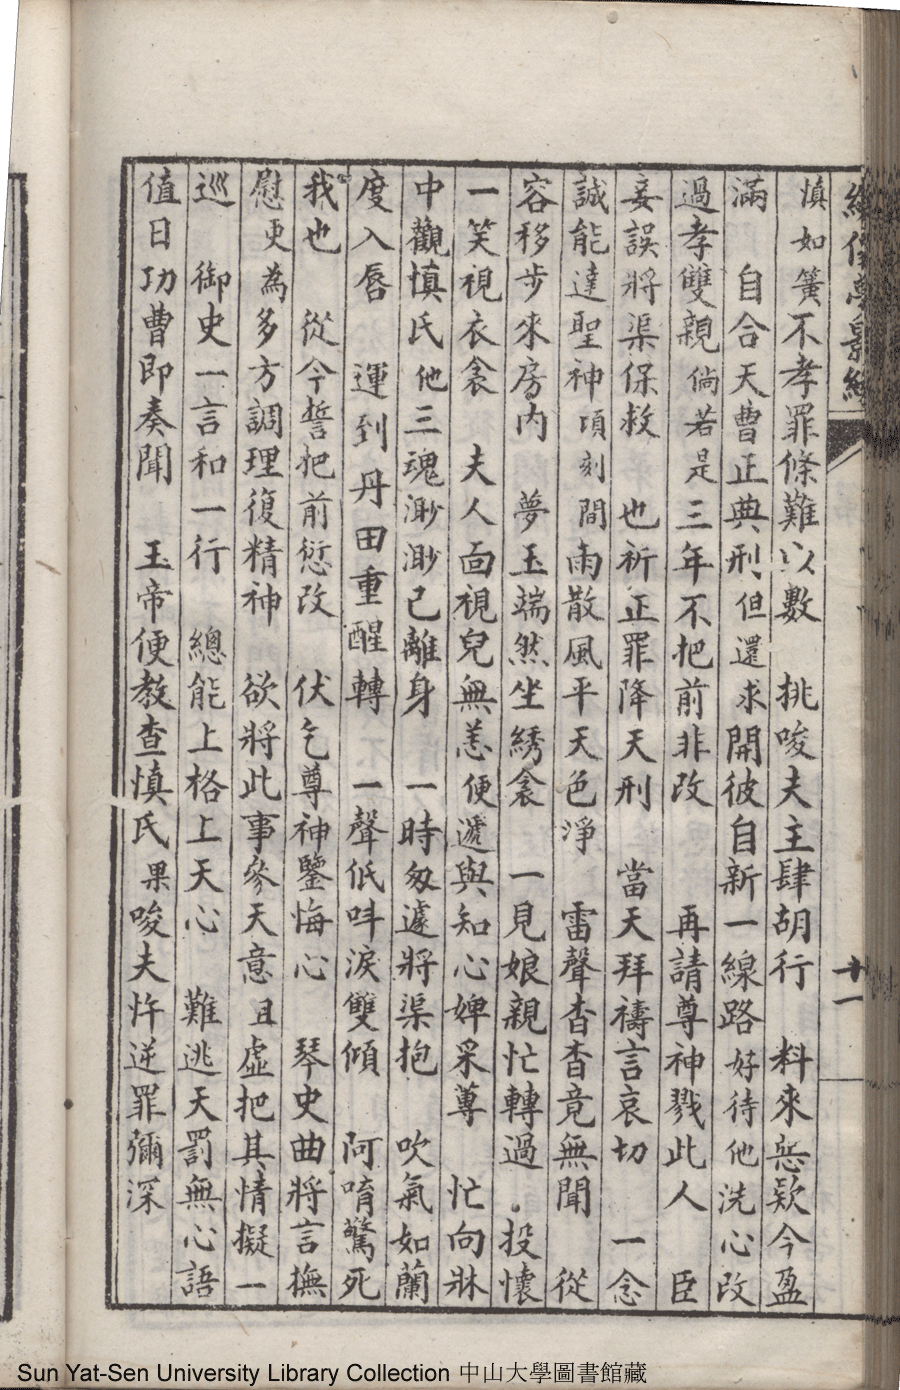 慎如簧不孝罪條難以數　挑唆夫主肆胡行　料來惡欵今盈
滿　自合天曹正典刑但還求開彼自新一線路好待他洗心改
過孝雙親倘若是三年不把前非改　再請尊神戮此人　臣
妾誤將渠保救　也祈正罪降天刑　當天拜禱言哀切　一念
誠能達聖神項刻間雨散風平天色凈　雷聲杳杳竟無聞　從
容移步來房內　夢玉端然坐綉衾　一見娘親忙轉過　投懷
一笑視衣衾　夫人面視兒無恙便遞與知心婢采蓴　忙向牀
中觀慎氏他三魂渺渺已離身　一時匆遽將渠抱　吹氣如蘭
度入唇　運到丹田重醒轉　一聲低呌淚雙傾　阿唷驚死
我也　從今誓把前愆改　伏乞尊神鑒悔心　琴史曲將言撫
慰更為多方調理復精神　欲將此事參天意且虛把其情擬一
巡　御史一言和一行　總能上格上天心　難逃天罰無心語
值日功曹即奏聞　玉帝便教查慎氏果唆夫忤逆罪彌深
十一
Sun Yat-Sen University Library Collection 中山大學圖書館藏